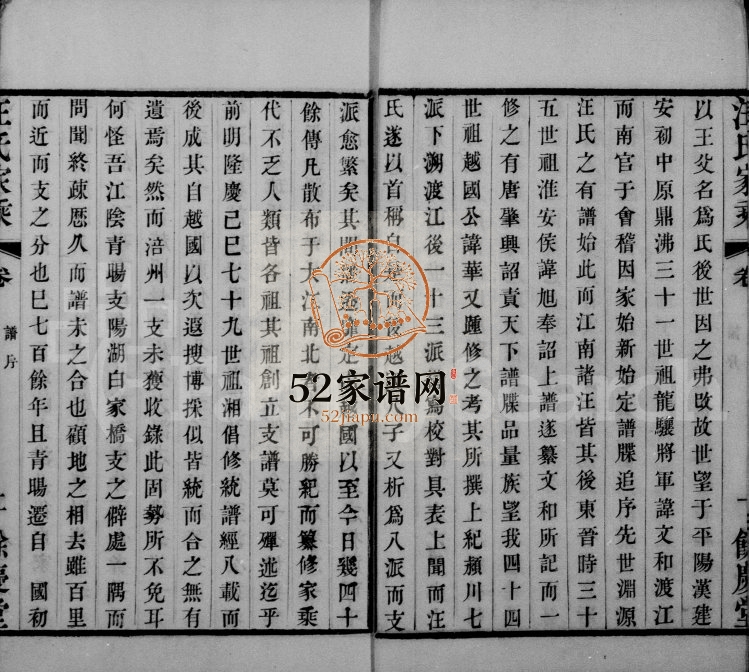 汪氏家乘
卷
譜序
一
餘慶堂
以王父名爲氏後世因之弗改故世望于平陽漢建
安初中原鼎沸三十一世祖龍驤將軍諱文和渡江
而南官于會稽因家始新始定譜牒追序先世淵源
汪氏之有譜始此而江南諸汪皆其後東晉時三十
五世祖淮安侯諱旭奉詔上譜遂纂文和所記而一
修之有唐肇興詔責天下譜牒品量族望我四十四
世祖越國公諱華又踵修之考其所撰上紀頴川七
派下溯渡江後一十三派 爲校對具表上聞而汪
氏遂以首稱自是而後越 子又析爲八派而支
派愈繁矣其間遷 國以至今日幾四十
餘傳凡散布于大江南北者不可勝紀而纂修家乘
代不乏人類皆各祖其祖創立支譜莫可殫述迄乎
前明隆慶己巳七十九世祖湘倡修統譜經八載而
後成其自越國以次遐搜博採似皆統而合之無有
遺焉矣然而涪州一支未獲收錄此固勢所不免耳
何怪吾江陰青暘支陽湖白家橋支之僻處一隅而
問聞終疎歷久而譜未之合也顧地之相去雖百里
而近而支之分也已七百餘年且青暘遷自 國初
汪氏家乘
卷
譜序
二
餘慶堂
52家谱网
52jiapu.com